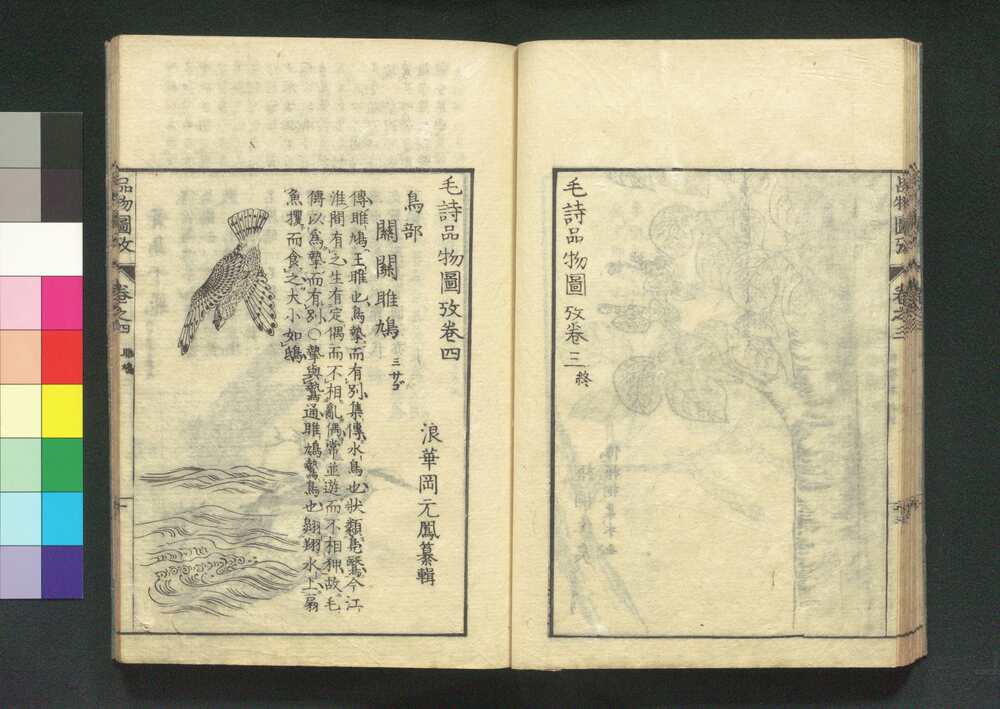 品物圖攷
卷之三
毛詩品物圖攷卷三終
毛詩品物圖攷卷四
浪華岡元鳳纂輯
鳥部
關關雎鳩 ミサゴ
傳雎鳩王雎也鳥摯而有別集傳水鳥也狀類鳧鷖今江
淮間有之生有定偶而不相亂偶常並遊而不相狎故毛
傳以爲摯而有別○摯與鷙通雎鳩鷙鳥也翺翔水上扇
魚攫而食之大小如鴟
品物圖攷
卷之四
雎鳩